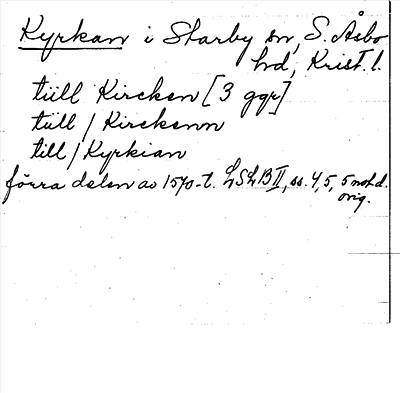 Kyrkan i Starby sn, S. Åsbo
hd, Krist. l.
tüll Kircken [3 ggr]
tüll / Kirckenn
till / Kyrkian
förra delen av 1570-t. LSLB II, ss. 4, 5, 5 not d.
orig.